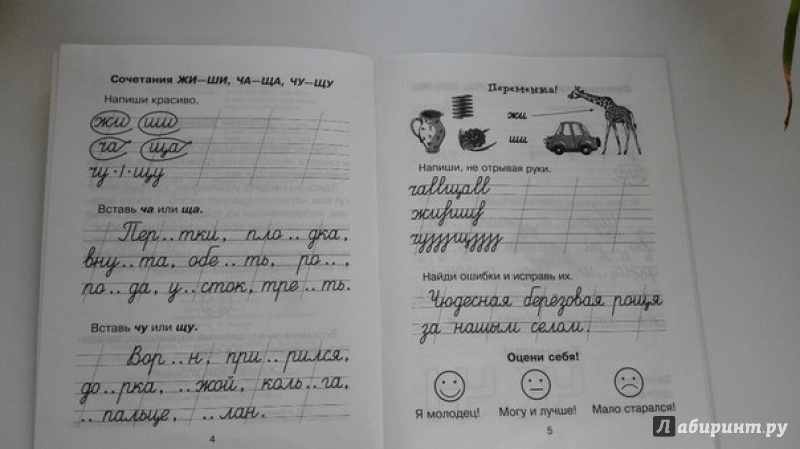 Сочетания ЖИ—ШИ, ЧА—ЩА, ЧУ—ЩУ
Напиши красиво.
жи ши
ча ща
чу · 1 · щу
Вставь ча или ща.
Пер..тки, пло..дка,
вну..та, обе..ть, ро..,
по..да, у..сток, тре..ть.
Вставь чу или щу.
Вор..н, при..рился,
до..рка, ..жой, коль..га,
..пальце, ..лан.
4
Переменка!
жи
ши
Напиши, не отрывая руки.
Найди ошибки и исправь их.
Чюдесная берёзовая рощя
за нашым селом.
Оцени себя!
Я молодец! Могу и лучше! Мало старался!
5
Лабиринт.ру